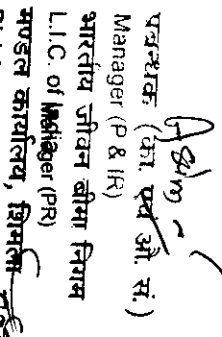 प्रबन्धक (का. एवं औ. सं.)
Manager (P & IR)
भारतीय जीवन बीमा निगम
L.I.C. of Manager (PR)
मण्डल कार्यालय, शिमला